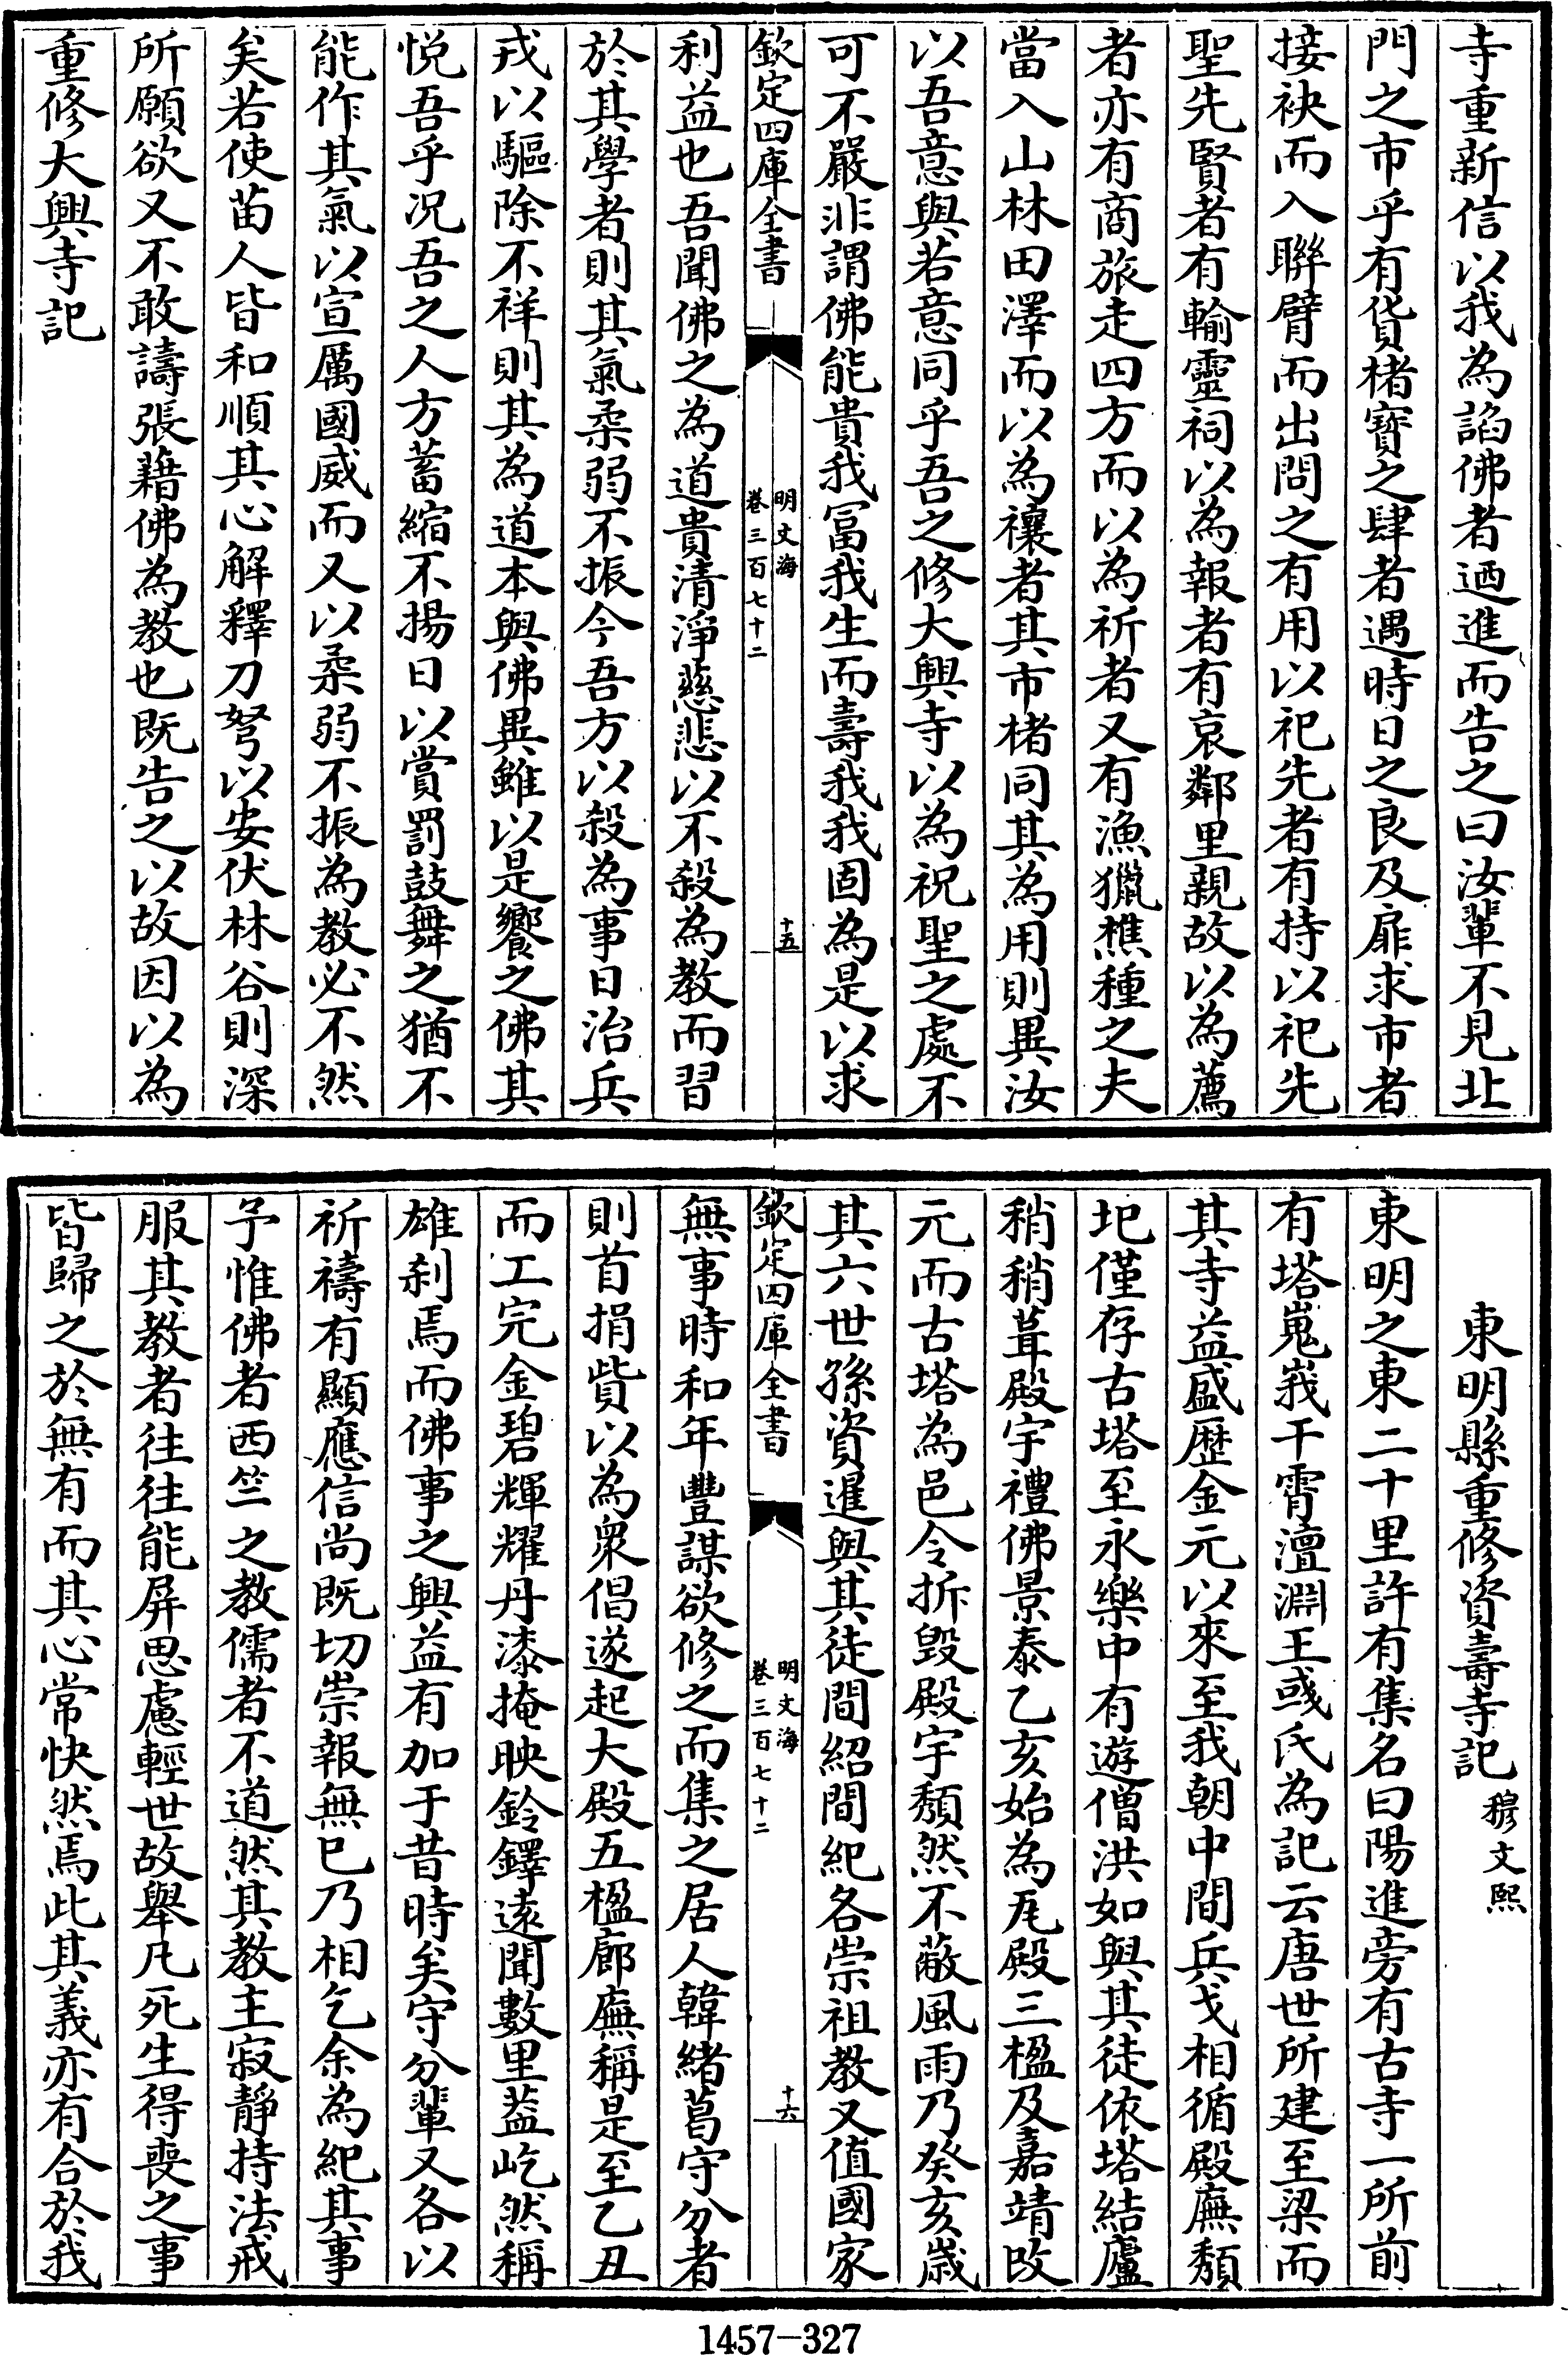 寺重新信以我為諂佛者迺進而告之曰汝輩不見北
門之市乎有貨楮寶之肆者遇時日之良及扉求市者
接袂而入聯臂而出問之有用以祀先者有持以祀先
聖先賢者有輸靈祠以為報者有哀鄰里親故以為薦
者亦有商旅走四方而以為祈者又有漁獵樵種之夫
當入山林田澤而以為禳者其市楮同其為用則異汝
以吾意與若意同乎吾之修大興寺以為祝聖之處不
可不嚴非謂佛能貴我富我生而壽我我固為是以求
欽定四庫全書
明文海
卷三百七十二
十五
利益也吾聞佛之為道貴清淨慈悲以不殺為教而習
於其學者則其氣柔弱不振今吾方以殺為事日治兵
戎以驅除不祥則其為道本與佛異雖以是饗之佛其
悅吾乎况吾之人方蓄縮不揚日以賞罰鼓舞之猶不
能作其氣以宣厲國威而又以柔弱不振為教必不然
矣若使苗人皆和順其心解釋刀弩以安伏林谷則深
所願欲又不敢譸張藉佛為教也既告之以故因以為
重修大興寺記
東明縣重修資壽寺記 穆文熙
東明之東二十里許有集名曰陽進旁有古寺一所前
有塔嵬峩干霄澶淵王彧氏為記云唐世所建至梁而
其寺益盛歷金元以來至我朝中間兵戈相循殿廡頽
圯僅存古塔至永樂中有遊僧洪如與其徒依塔結廬
稍稍葺殿宇禮佛景泰乙亥始為瓦殿三楹及嘉靖改
元而古塔為邑令拆毁殿宇頽然不蔽風雨乃癸亥歲
其六世孫資暹與其徒間紹間紀各崇祖教又值國家
欽定四庫全書
明文海
卷三百七十二
十六
無事時和年豐謀欲修之而集之居人韓緒葛守分者
則首捐貲以為衆倡遂起大殿五楹廊廡稱是至乙丑
而工完金碧輝耀丹漆掩映鈴鐸遠聞數里葢屹然稱
雄刹焉而佛事之興益有加于昔時矣守分輩又各以
祈禱有顯應信尚既切崇報無已乃相乞余為紀其事
予惟佛者西竺之教儒者不道然其教主寂靜持法戒
服其教者往往能屏思慮輕世故舉凡死生得喪之事
皆歸之於無有而其心常快然焉此其義亦有合於我
1457-327